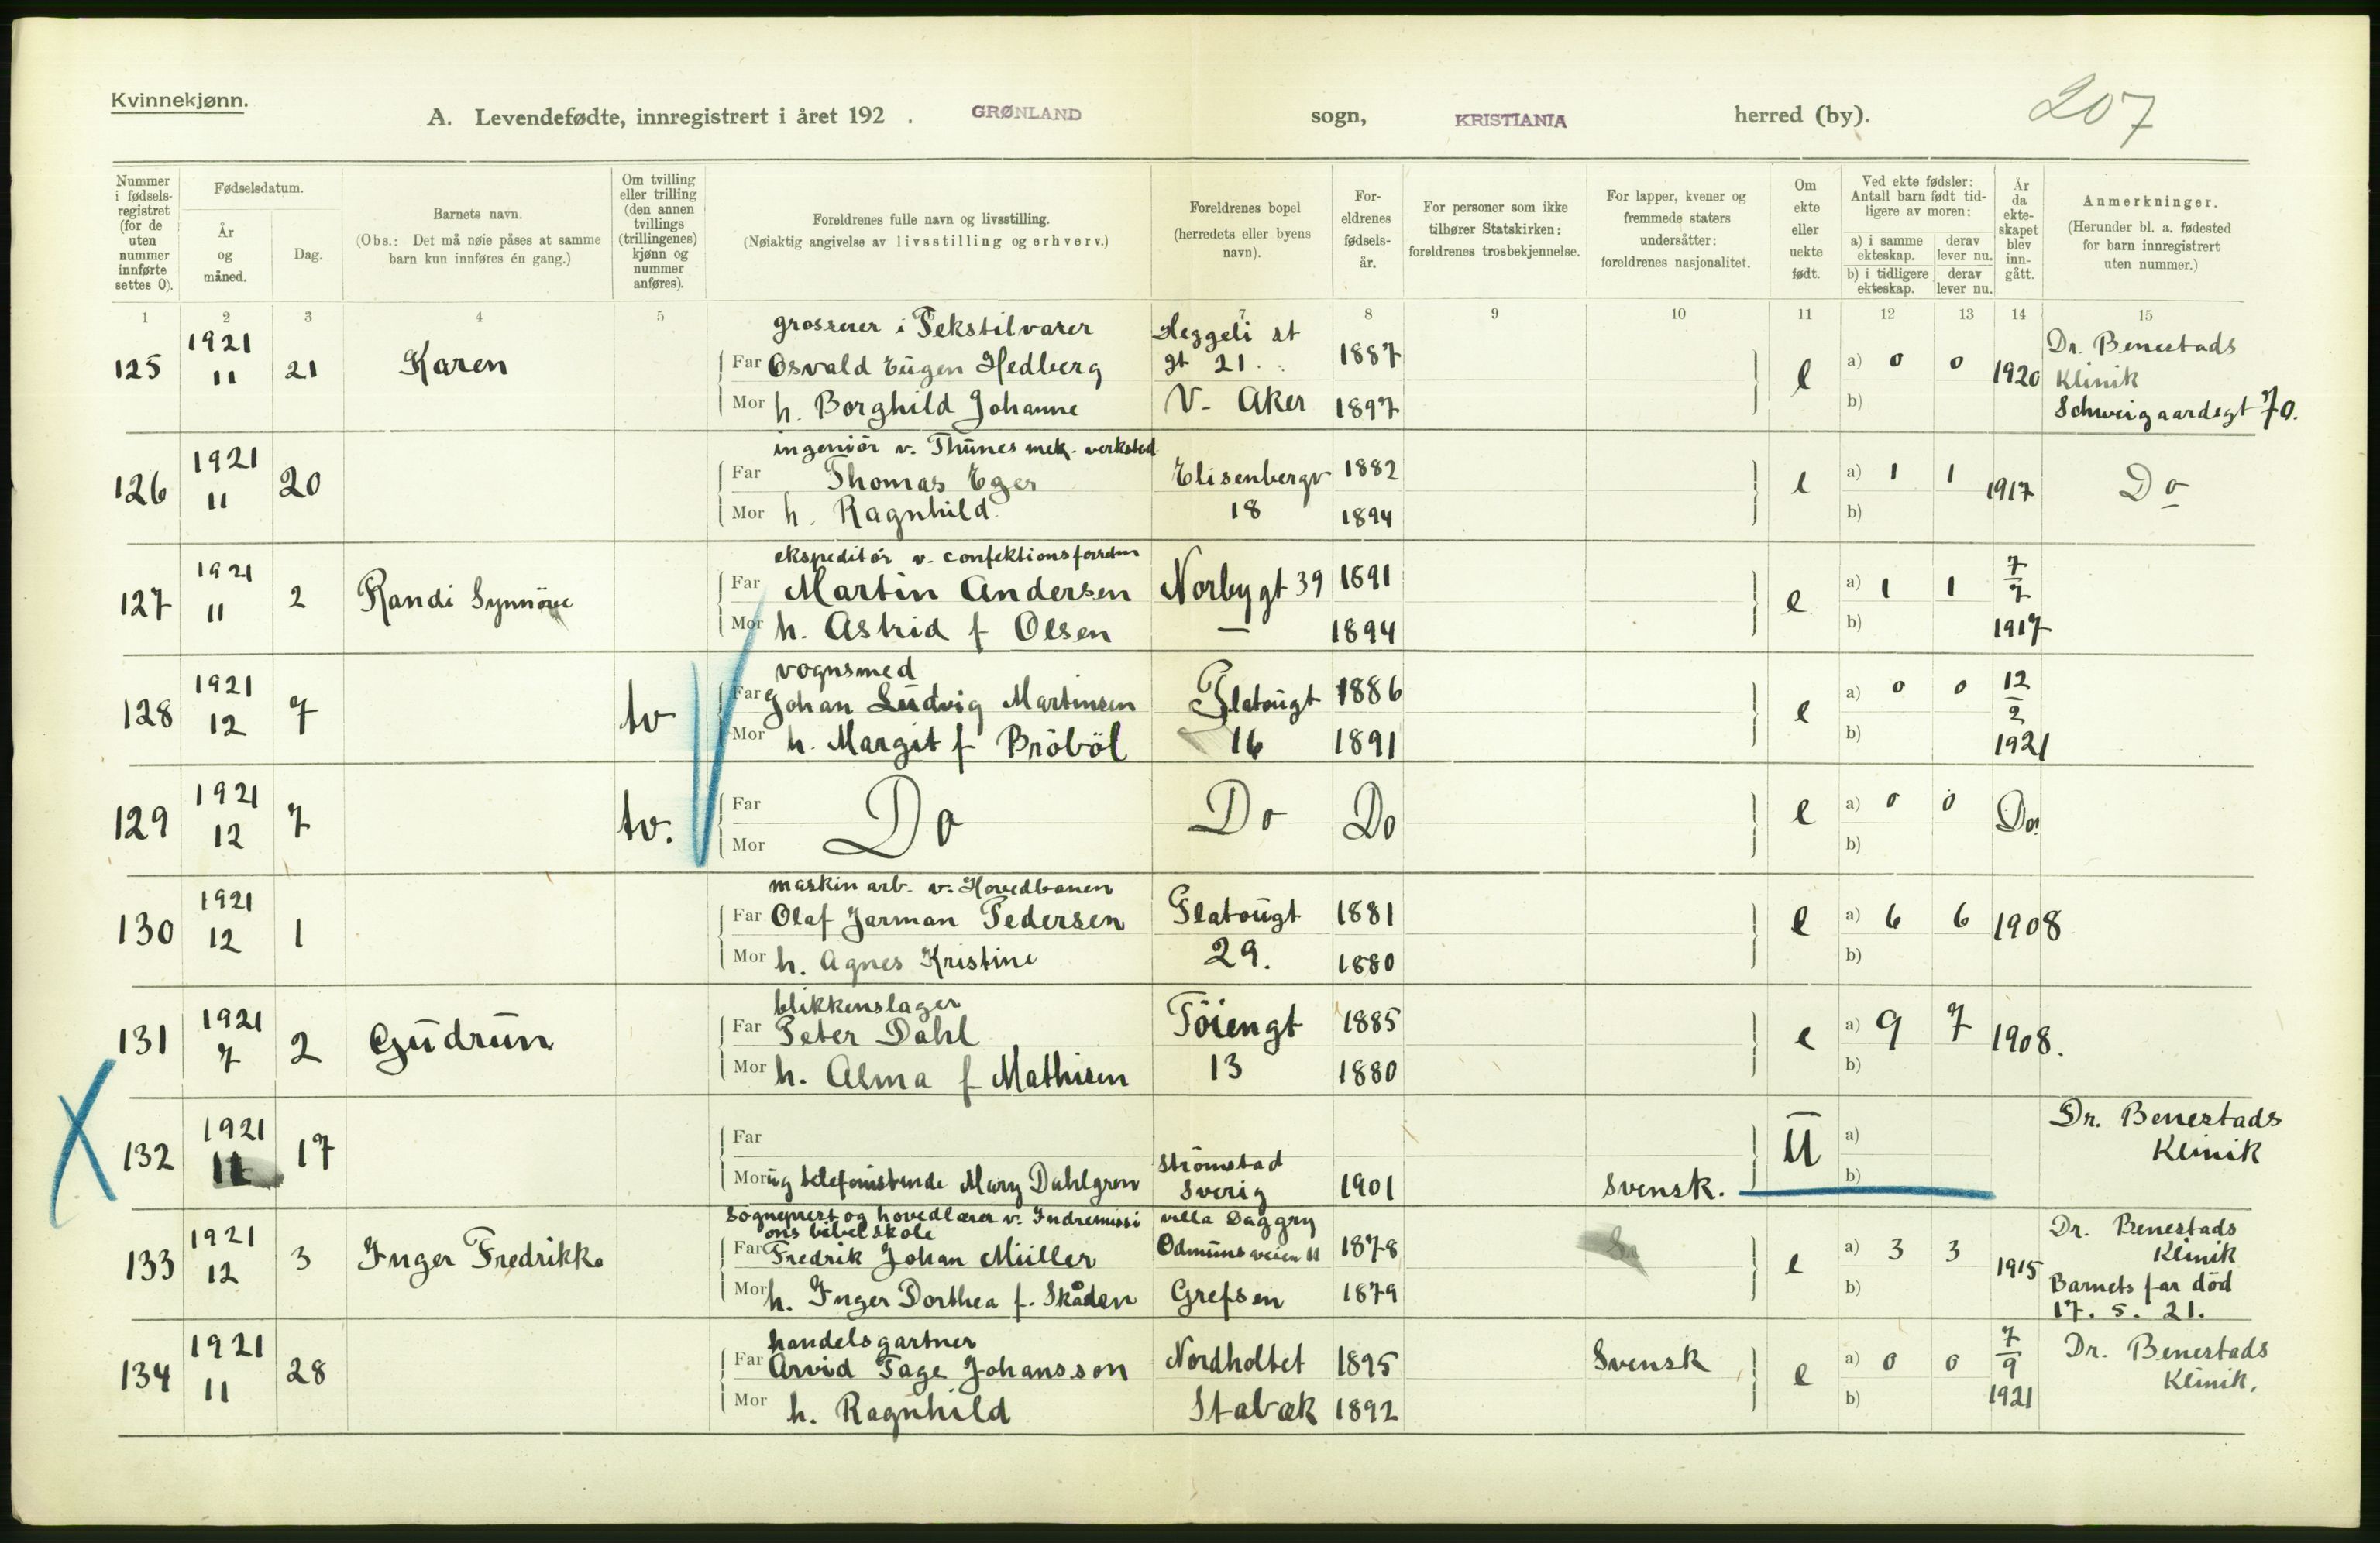 Kvinnekjønn.
A. Levendefødte, innregistrert i året 192 . GRØNLAND sogn, KRISTIANIA herred (by). 207
Nummer i fødselsregistret (for de uten nummer innførte settes 0).
Fødselsdatum.
År og måned.
Dag.
Barnets navn.
(Obs.: Det må nøie påses at samme barn kun innføres én gang.)
Om tvilling eller trilling (den annen tvillings (trillingenes) kjønn og nummer anføres).
Foreldrenes fulle navn og livsstilling.
(Nøiaktig angivelse av livsstilling og erhverv.)
Foreldrenes bopel (herredets eller byens navn).
Foreldrenes fødselsår.
For personer som ikke tilhører Statskirken: foreldrenes trosbekjennelse.
For lapper, kvener og fremmede staters undersåtter: foreldrenes nasjonalitet.
Om ekte eller uekte født.
Ved ekte fødsler: Antall barn født tidligere av moren:
a) i samme ekteskap. derav lever nu.
b) i tidligere ekteskap. derav lever nu.
År da ekteskapet blev inngått.
Anmerkninger.
(Herunder bl. a. fødested for barn innregistrert uten nummer.)
1 2 3 4 5 7 8 9 10 11 12 13 14 15
125 1921 11 21 Karen
grosserer i Tekstilvarer
Far Osvald Eugen Hedberg
Mor h. Borghild Johanne
Heggeli st
gt 21.
V. Aker
1887
1897
e a) 0 0 b) 1920
Dr. Benestads
Klinik
Schweigaardsgt 70.
126 1921 11 20
ingeniör v. Thunes mek. verksted
Far Thomas Eger
Mor h. Ragnhild
Elisenbergv
18
1882
1894
e a) 1 1 b) 1917
Do
127 1921 11 2 Randi Synnöve
ekspeditör v. confektionsforretn
Far Martin Andersen
Mor h. Astrid f Olsen
Norbygt 39
—
1891
1894
e a) 1 1 b) 7/7 1917
128 1921 12 7 tv
vognsmed
Far Johan Ludvig Martinsen
Mor h. Margit f Bröböl
Platougt
16
1886
1891
e a) 0 0 b) 12/2 1921
129 1921 12 7 tv.
Far Do
Mor
Do Do
e a) 0 0 b) Do
130 1921 12 1
maskinarb. v. Hovedbanen
Far Olaf Jarman Pedersen
Mor h. Agnes Kristine
Platougt
29.
1881
1880
e a) 6 6 b) 1908
131 1921 7 2 Gudrun
blikkenslager
Far Peter Dahl
Mor h. Alma f Mathisen
Töiengt
13
1885
1880
e a) 9 7 b) 1908.
X 132 1921 11 17
Far
Mor ug telefonistinde Mary Dahlgren
Strömstad
Sverig
1901
Svensk.
U a) b)
Dr. Benestads
Klinik
133 1921 12 3 Inger Fredrikke
Sogneprest og hovedlærer v. Indremissi
ons bibelskole
Far Fredrik Johan Müller
Mor h. Inger Dorthea f. Skåden
villa Daggry
Odmunsveien 11
Grefsen
1878
1879
e a) 3 3 b) 1915
Dr. Benestads
Klinik
Barnets far död
17. 5. 21.
134 1921 11 28
handelsgartner
Far Arvid Tage Johansson
Mor h. Ragnhild
Nordholtet
Stabæk
1895
1892
Svensk
e a) 0 0 b) 7/9 1921
Dr. Benestads
Klinik.